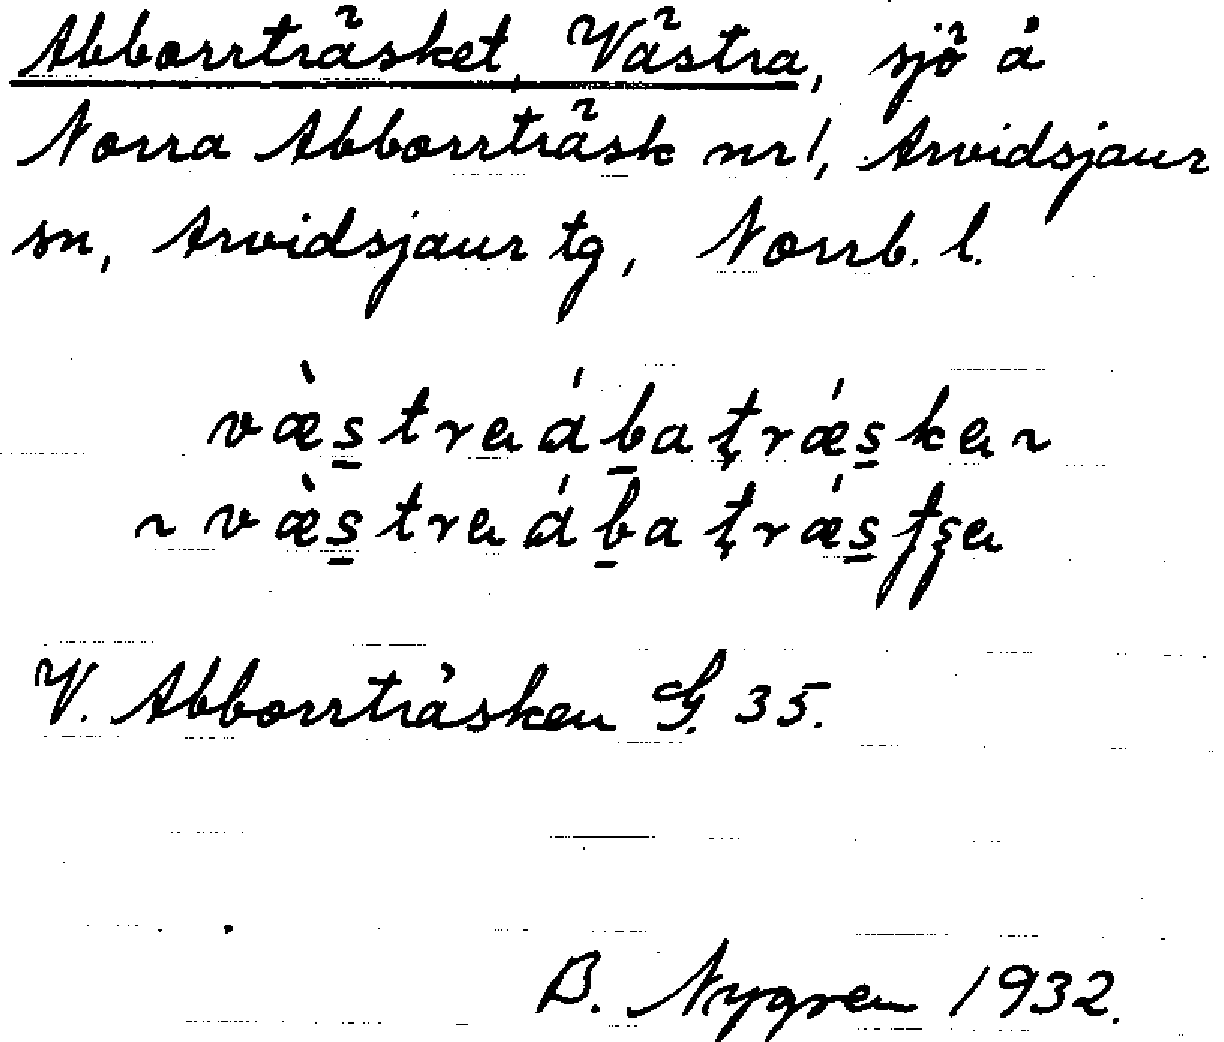 Abborrträsket, Västra, sjö å
Norra Abborrträsk nr 1, Arvidsjaur
sn, Arvidsjaur tg, Norrb. l.
væ̀s̲trea áb̲aṭrǽs̲kea ~
~ væ̀s̲trea áb̲aṭrǽs̲tʂea
V. Abborrträsken G. 35.
B. Nygren 1932.